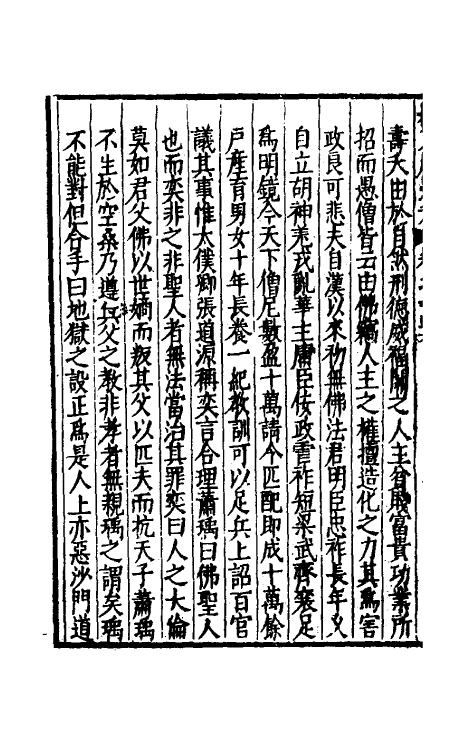 壽夭由於自然刑德威福關之人主貧賤富貴功業所
招而愚僧皆云由佛竊人主之權擅造化之力其爲害
政良可悲夫自漢以來初無佛法君明臣忠祚長年乆
自立胡神羌戎亂華主庸臣佞政虐祚短梁武齊襄足
爲明鏡今天下僧尼數盈十萬請令匹配即成十萬餘
户產育男女十年長養一紀教訓可以足兵上詔百官
議其事惟太僕卿張道源稱奕言合理蕭瑀曰佛聖人
也而奕非之非聖人者無法當治其罪奕曰人之大倫
莫如君父佛以世嫡而叛其父以匹夫而抗天子蕭瑀
不生於空桑乃遵無父之教非孝者無親瑀之謂矣瑀
不能對但合手曰地獄之設正爲是人上亦惡沙門道